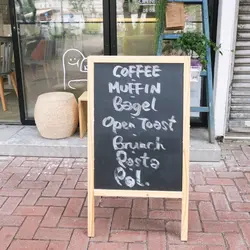 COFFEE
MUFFiN
Bagel
Open Toast
Brunch
Pasta